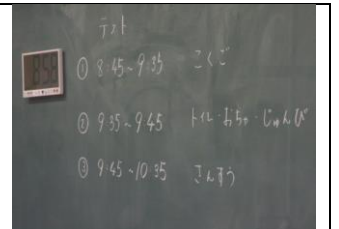 テスト
8:58
① 8:45~9:35 こくご
② 9:35~9:45 トイレ・おちゃ・じゅんび
③ 9:45~10:35 さんすう